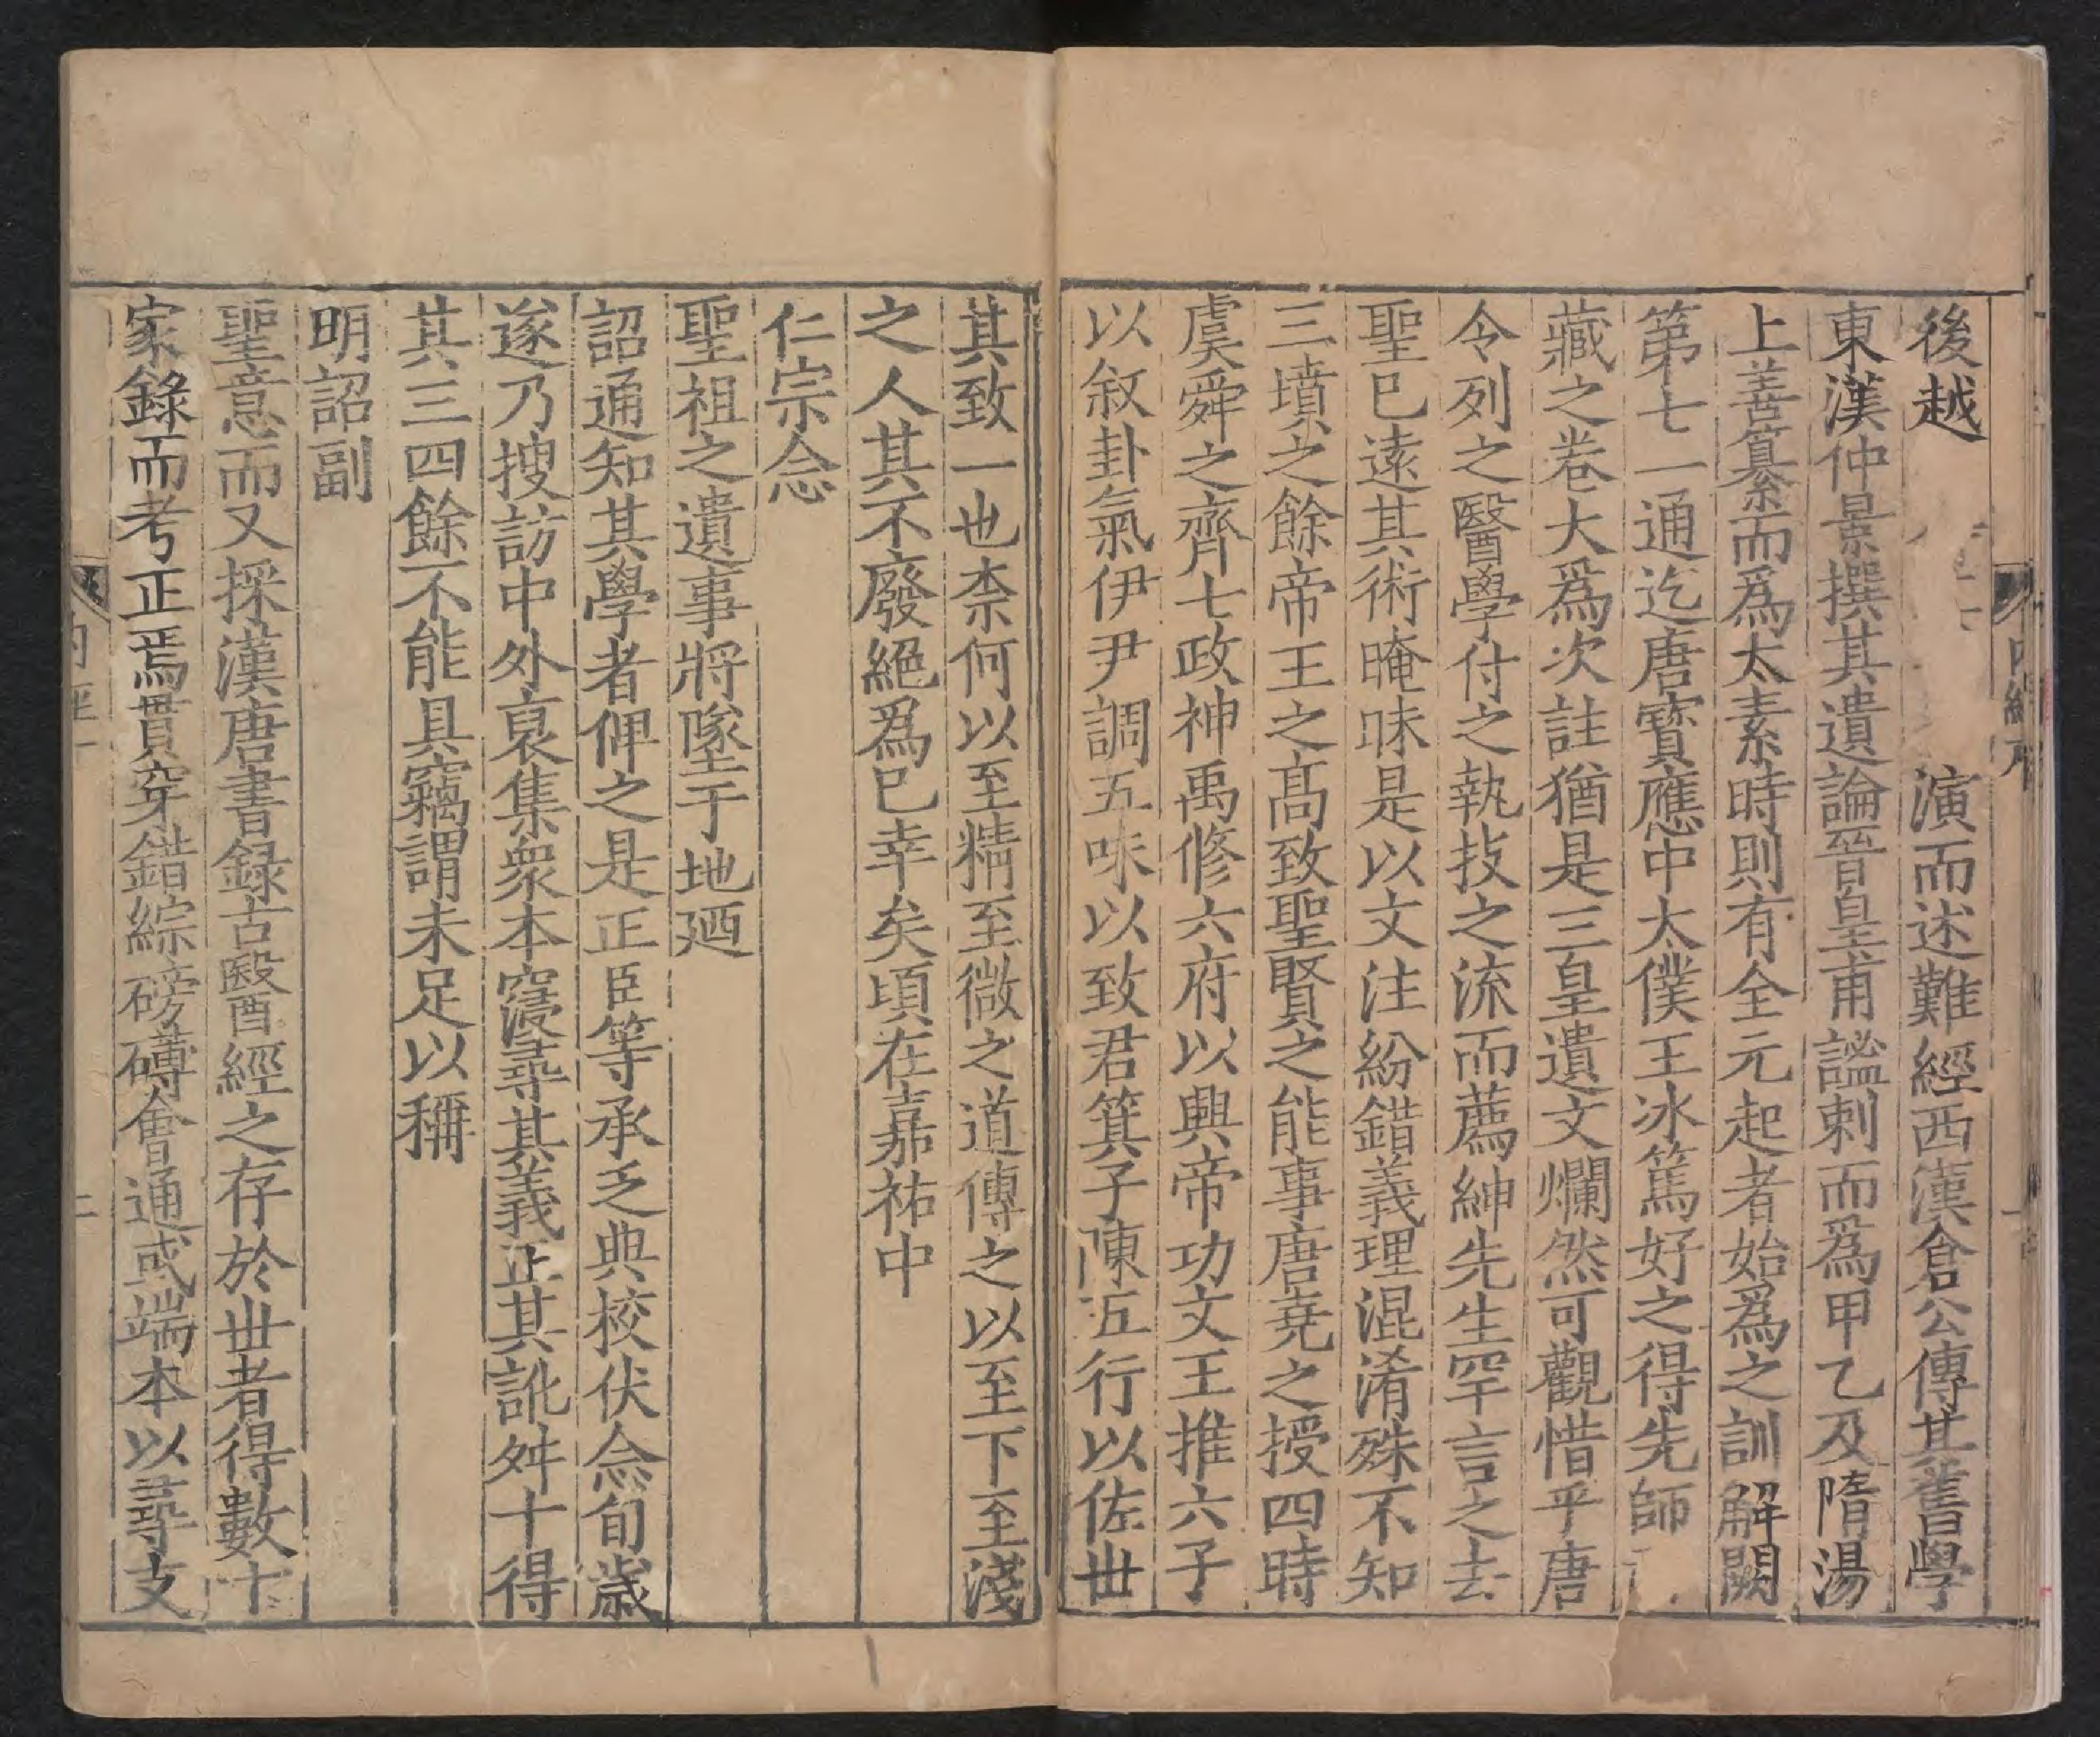 後越演而述難經西漢倉公傳其舊學
東漢仲景撰其遺論晉皇甫謐刺而爲甲乙及隋湯
上善纂而爲太素時則有全元起者始爲之訓解闕
第七一通迄唐寶應中太僕王冰篤好之得先師
藏之卷大爲次註猶是三皇遺文爛然可觀惜乎唐
令列之醫學付之執技之流而薦紳先生罕言之去
聖已遠其術晻昧是以文注紛錯義理混淆殊不知
三墳之餘帝王之高致聖賢之能事唐堯之授四時
虞舜之齊七政神禹修六府以興帝功文王推六子
以敘卦氣伊尹調五味以致君箕子陳五行以佐世
其致一也柰何以至精至微之道傳之以至下至淺
之人其不廢絕爲已幸矣頃在嘉祐中
仁宗念
聖祖之遺事將墜于地廼
詔通知其學者俾之是正臣等承乏典校伏念旬歲
遂乃搜訪中外裒集衆本寖尋其義正其訛舛十得
其三四餘不能具竊謂未足以稱
明詔副
聖意而又採漢唐書録古醫經之存於世者得數十
家錄而考正焉貫穿錯綜磅礴會通或端本以尋支